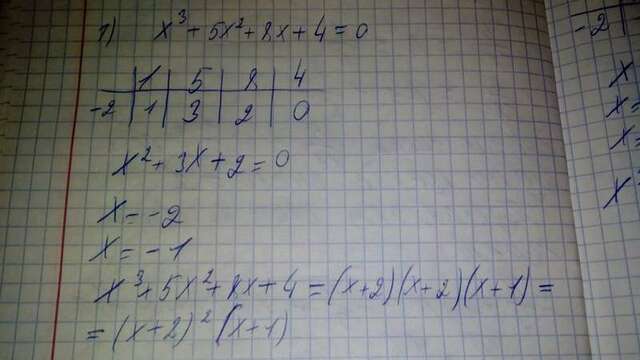 1) x³ + 5x² + 8x + 4 = 0
1 5 8 4
-2 1 3 2 0
x² + 3x + 2 = 0
x = -2
x = -1
x³ + 5x² + 8x + 4 = (x+2)(x+2)(x+1) =
= (x+2)² (x+1)
-2
x
x=
x=
x³